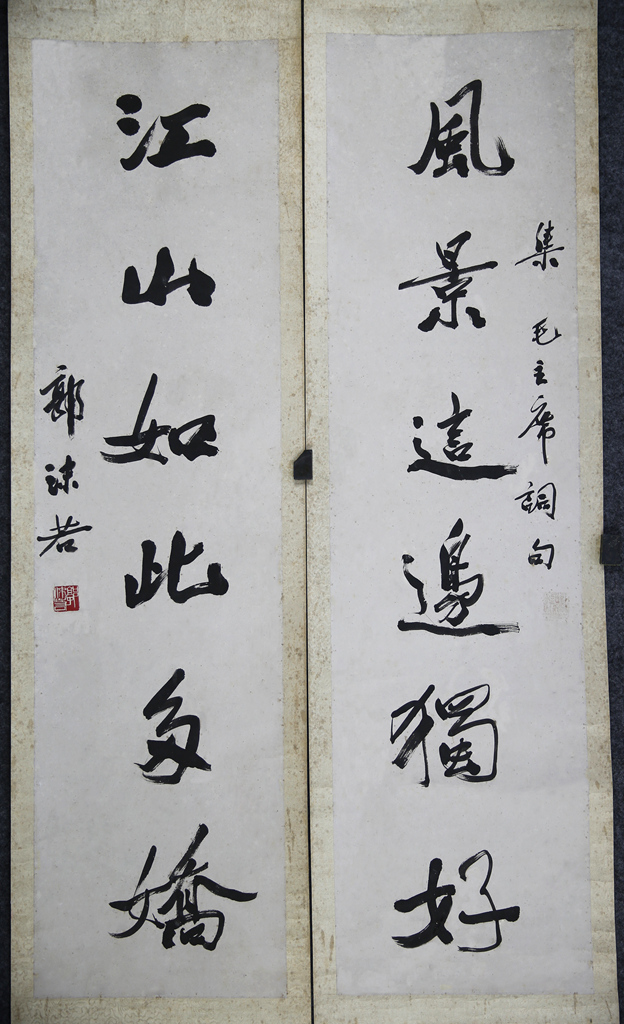 風景這邊獨好
集毛主席詞句
江山如此多嬌
郭沫若